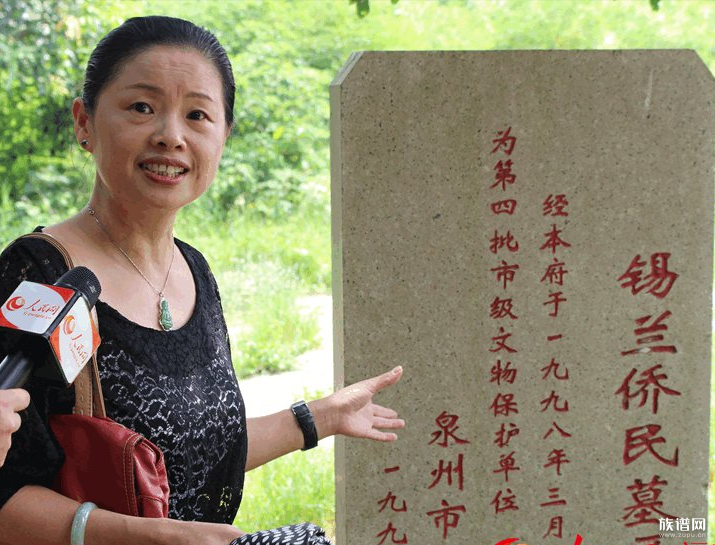 锡兰侨民墓
经本府于一九九八年三月
为第四批市级文物保护单位
泉州市
一九九
人民网
族谱网
www.zupu.cn